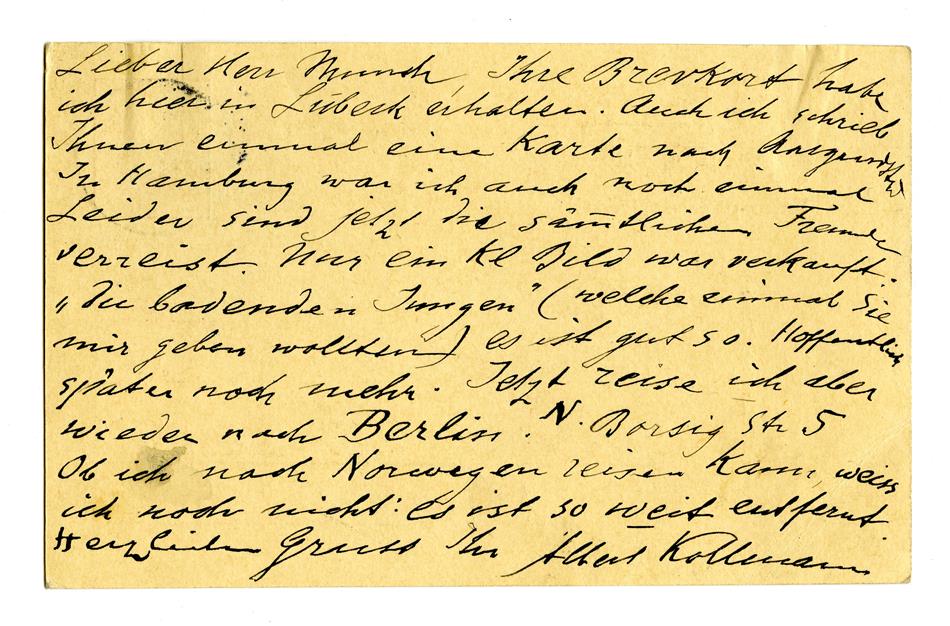 Lieber Herr Munch Ihre Brevkort habe
ich hier in Lübeck erhalten. Auch ich schrieb
Ihnen einmal eine Karte nach
In Hamburg war ich auch noch einmal
Leider sind jetzt die sämtlichen Freunde
verreist. Nur ein Kl Bild war verkauft.
„die badenden Jungen" (welche einmal Sie
mir geben wollten) es ist gut so. Hoffentlich
später noch mehr. Jetzt reise ich aber
wieder nach Berlin. N. Borsig Str 5
Ob ich nach Norwegen reisen kann, weiss
ich noch nicht: es ist so weit entfernt.
Herzlichen Gruss Ihr Albert Kollmann